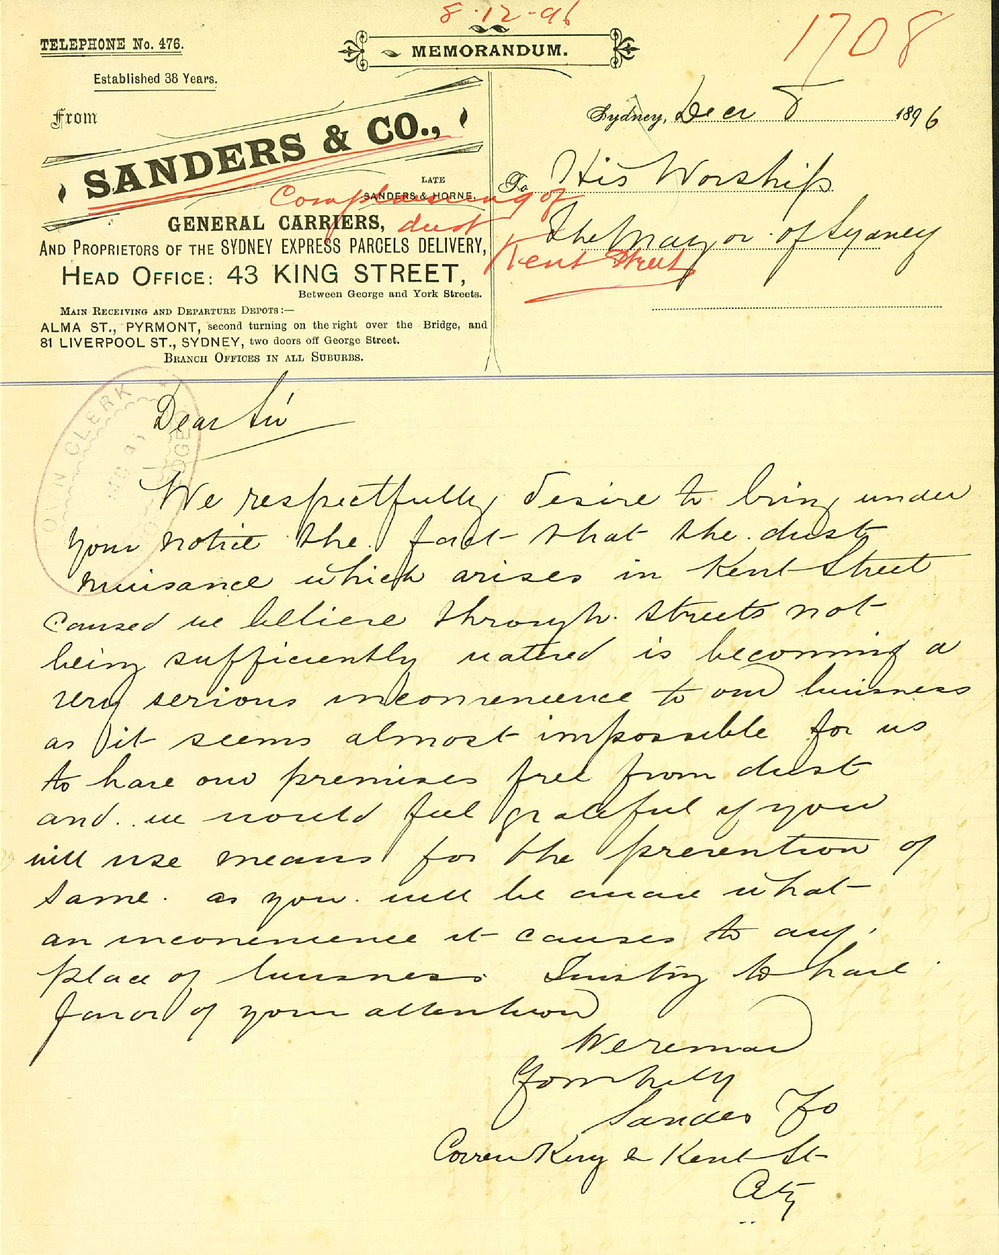 8-12-96
1708
TELEPHONE No. 476.
MEMORANDUM.
Established 38 Years.
From
Sydney, Decr 8 1896
SANDERS & CO.,
LATE
SANDERS & HORNE,
To His Worship
Complaining of
dust
Kent Street
GENERAL CARRIERS,
The Mayor of Sydney
AND PROPRIETORS OF THE SYDNEY EXPRESS PARCELS DELIVERY,
HEAD OFFICE: 43 KING STREET,
Between George and York Streets.
MAIN RECEIVING AND DEPARTURE DEPOTS:—
ALMA ST., PYRMONT, second turning on the right over the Bridge, and
81 LIVERPOOL ST., SYDNEY, two doors off George Street.
BRANCH OFFICES IN ALL SUBURBS.
TOWN CLERK
Dear Sir
We respectfully desire to bring under
your notice the fact that the dust
nuisance which arises in Kent Street
caused we believe through streets not
being sufficiently watered is becoming a
very serious inconvenience to our business
as it seems almost impossible for us
to have our premises free from dust
and we would feel grateful if you
will use means for the prevention of
same. as you will be aware what
an inconvenience it causes to any
place of business. Trusting to have
favor of your attention
We remain
Yours truly
Sanders & Co
Corner King & Kent St
City